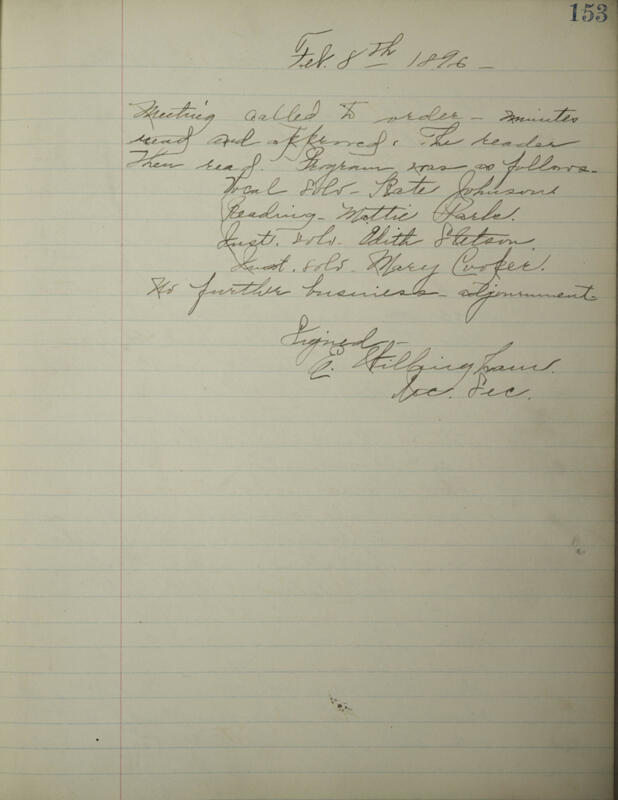 153
Feb. 8th 1896 -
Meeting called to order - minutes
read and approved. The reader
then read. Program was as follows -
Vocal Solo - Kate Johnson
Reading - Mattie Park.
Inst. solo - Edith Stetson.
Inst. solo - Mary Cooper.
No further business - adjournment -
Signed -
E. Hillingham.
Rec. Sec.